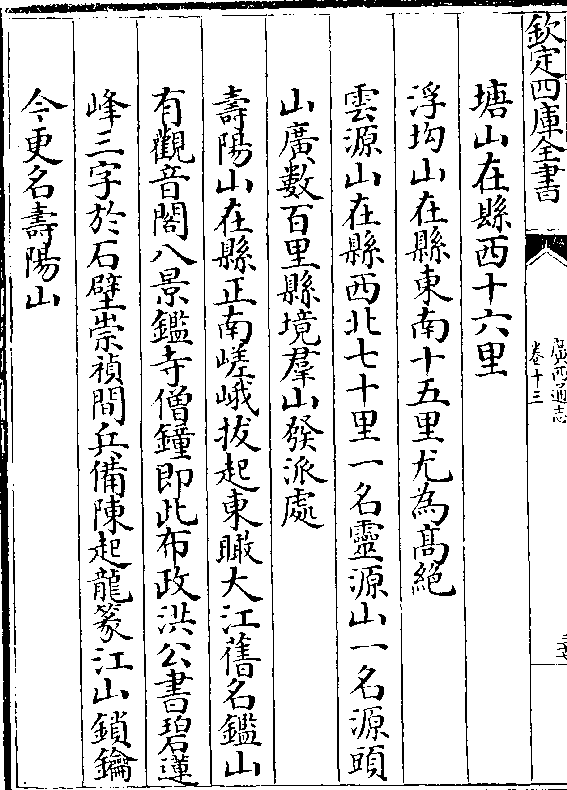 欽定四庫全書
廣西通志
卷十三
塘山在縣西十六里
浮均山在縣東南十五里尤為髙絕
雲源山在縣西北七十里一名靈源山一名源頭
山廣数百里縣境羣山發派處
壽陽山在縣正南嵯峨拔起東瞰大江舊名鑑山
有觀音閣八景鑑寺僧鐘即此布政洪公書碧蓮
峰三字於石壁崇禎間兵備陳起龍篆江山鎖鑰
今更名壽陽山